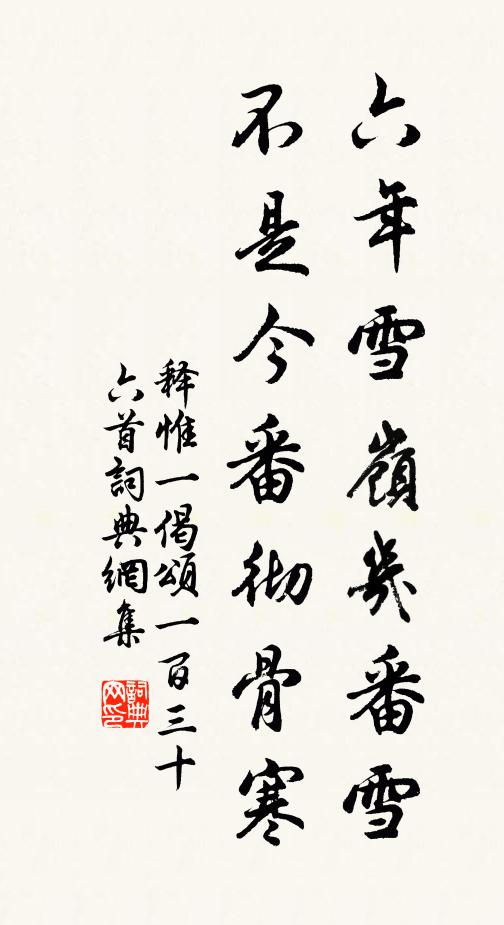 六年雪嶺幾番雪
不是今番彻骨寒
释惟一偈頌一百三十
六首詞典網集
詞典网印